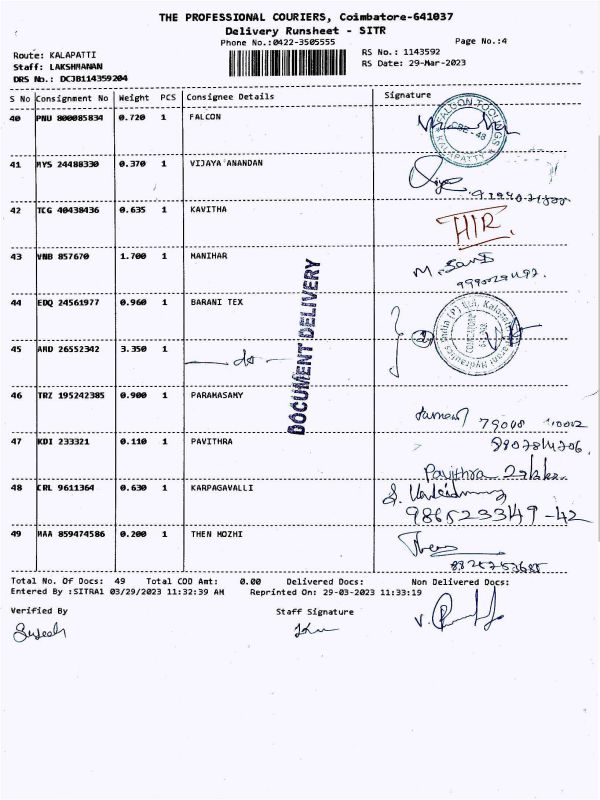 THE PROFESSIONAL COURIERS, Coimbatore-641037
Delivery Runsheet - SITR
Phone No.:0422-3505555
Page No.:4
Route: KALAPATTI
RS No.: 1143592
Staff: LAKSHMANAN
RS Date: 29-Mar-2023
DRS No.: DCJB114359204
S No Consignment No Weight PCS Consignee Details Signature
40 PNU 800085834 0.720 1 FALCON
FALCON TOOLINGS
CBE-48
KALAPATTY
41 MYS 24488330 0.370 1 VIJAYA ANANDAN
42 TCG 40438436 0.635 1 KAVITHA
43 VNB 857670 1.700 1 MANIHAR
44 EDQ 24561977 0.960 1 BARANI TEX
45 AMD 26552342 3.350 1
DOCUMENT DELIVERY
46 TRZ 195242385 0.900 1 PARAMASAMY
47 KDI 233321 0.110 1 PAVITHRA
Pavithra
48 CRL 9611364 0.630 1 KARPAGAVALLI
49 MAA 859474586 0.200 1 THEN MOZHI
Total No. Of Docs: 49 Total COD Amt: 0.00 Delivered Docs: Non Delivered Docs:
Entered By :SITRA1 03/29/2023 11:32:39 AM Reprinted On: 29-03-2023 11:33:19
Verified By Staff Signature